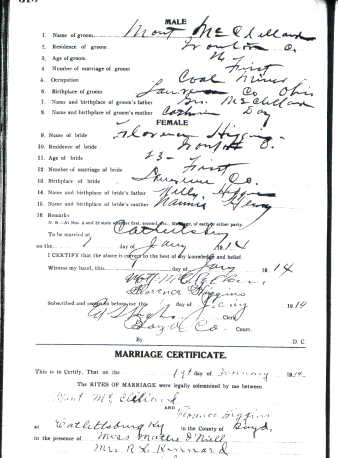 MALE
1. Name of groom Mont McClelland
2. Residence of groom Ironton O.
3. Age of groom 26
4. Number of marriage of groom First
5. Occupation Coal Miner
6. Birthplace of groom Lawrence Co Ohio
7. Name and birthplace of groom's father Geo. McClelland
8. Name and birthplace of groom's mother Day
FEMALE
9. Name of bride Florence Higgins
10. Residence of bride Ironton O.
11. Age of bride 23-
12. Number of marriage of bride First
13. Birthplace of bride Lawrence Co.
14. Name and birthplace of bride's father Willy Higgins
15. Name and birthplace of bride's mother Nannie Henry
16. Remarks
To be married at Catlettsburg
on the 1 day of Jany 1914
I CERTIFY that the above is correct to the best of my knowledge and belief
Witness my hand, this day of Jany 1914
Mont McClelland
Florence Higgins
Subscribed and sworn to before me this 1 day of Jany 1914
Clerk
Boyd Co. Court.
By D. C.
MARRIAGE CERTIFICATE.
This is to Certify, That on the 1st day of January 1914
The RITES OF MARRIAGE were legally solemnized by me between
Mont McClelland
AND
Florence Higgins
at Catlettsburg Ky in the County of Boyd,
in the presence of Miss Mattie O'Neill
Mrs. R. L. Kinnard